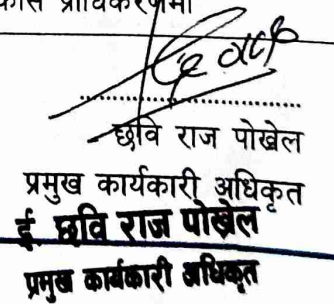 प्राधिकरणमा
छवि राज पोखेल
प्रमुख कार्यकारी अधिकृत
ई. छवि राज पोखेल
प्रमुख कार्यकारी अधिकृत